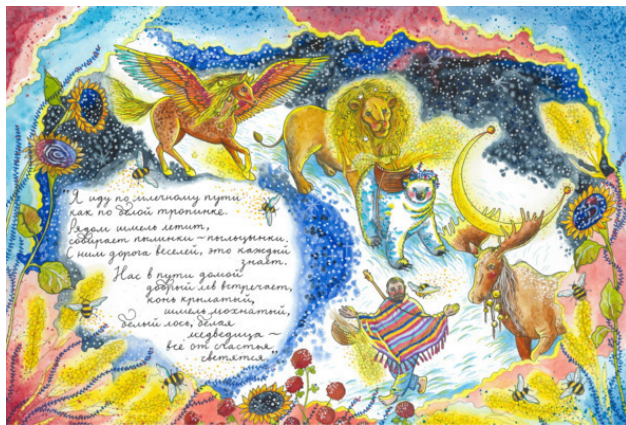 "Я иду по млечному пути
как по белой тропинке.
Рядом шмель летит,
собирает пылинки - пыльцинки.
С ним дорога веселей, это каждый
знает.
Нас в пути домой
добрый лев встречает,
конь крылатый,
шмель мохнатый,
белый лось, белая
медведица ~
все от счастья
светятся."